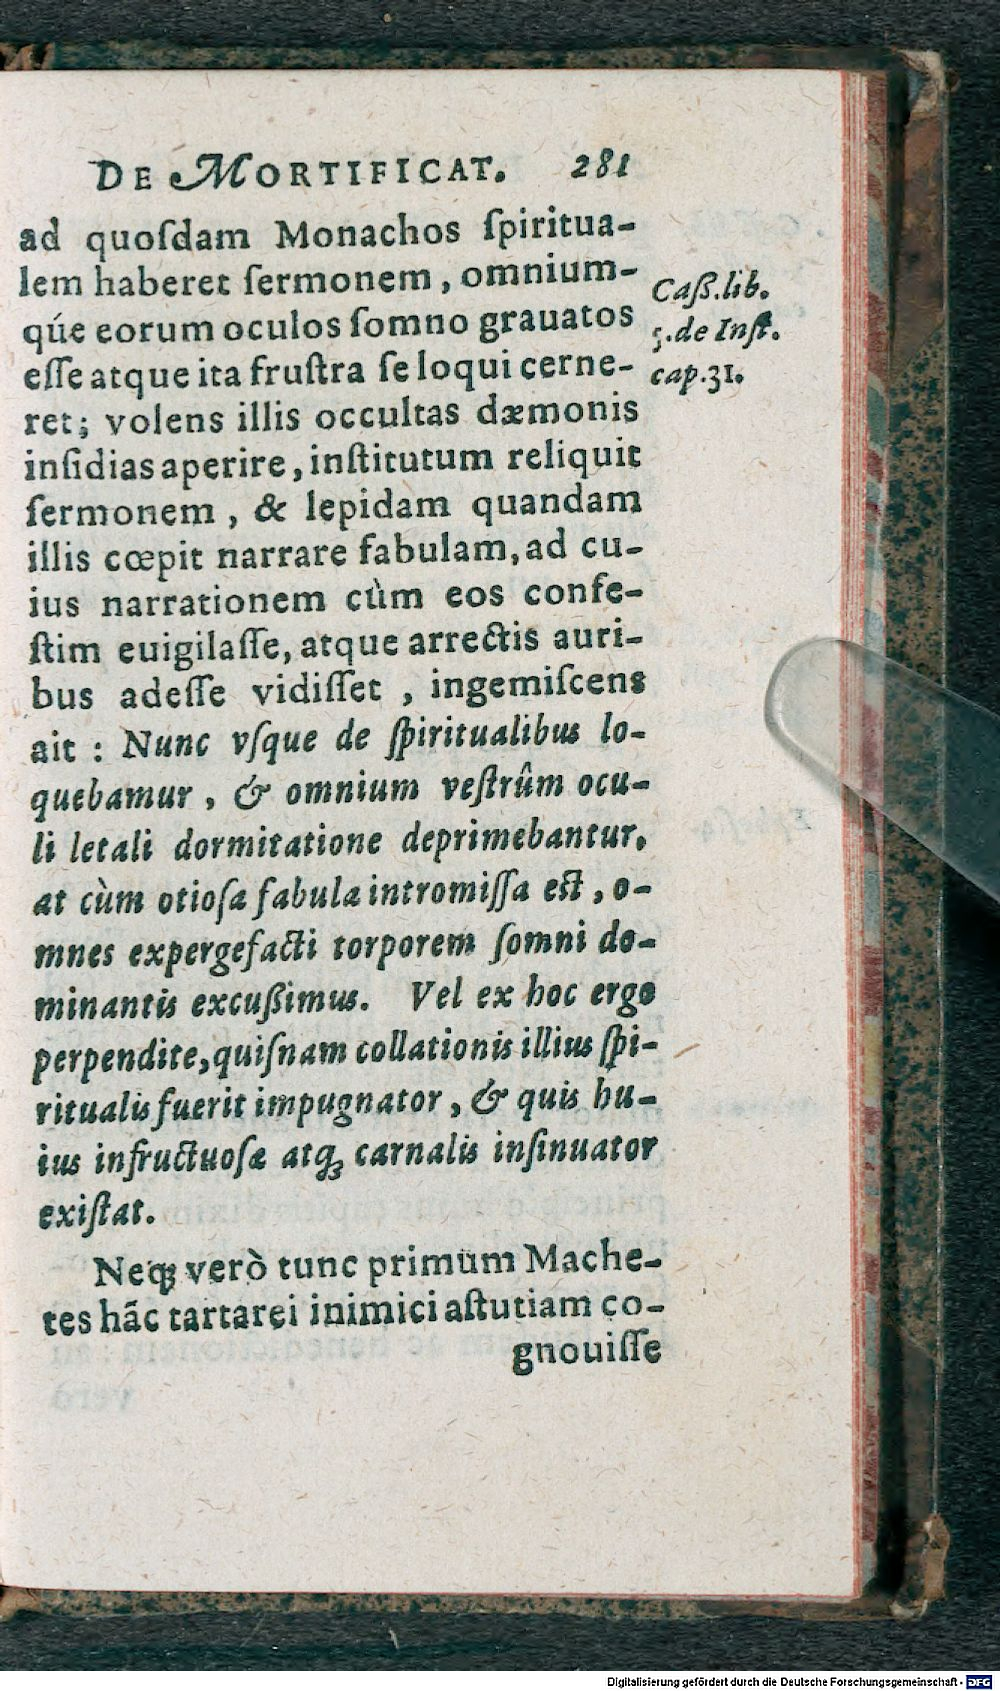 DE MORTIFICAT. 281
ad quoſdam Monachos ſpiritua-
lem haberet ſermonem, omnium-
qúe eorum oculos ſomno grauatos
eſſe atque ita fruſtra ſe loqui cerne-
ret; volens illis occultas dæmonis
inſidias aperire, inſtitutum reliquit
ſermonem, & lepidam quandam
illis cœpit narrare fabulam, ad cu-
ius narrationem cùm eos confe-
ſtim euigilaſſe, atque arrectis auri-
bus adeſſe vidiſſet, ingemiſcens
ait: Nunc vſque de ſpiritualibus lo-
quebamur, & omnium veſtrûm ocu-
li letali dormitatione deprimebantur.
at cùm otioſa fabula intromiſſa eſt, o-
mnes expergefacti torporem ſomni do-
minantis excußimus. Vel ex hoc ergo
perpendite, quiſnam collationis illius ſpi-
ritualis fuerit impugnator, & quis hu-
ius infructuoſæ atq; carnalis inſinuator
exiſtat.
Neq; verò tunc primum Mache-
tes hãc tartarei inimici aſtutiam co-
gnouiſſe
Caß. lib.
5. de Inſt.
cap. 31.
Digitalisierung gefördert durch die Deutsche Forschungsgemeinschaft - DFG